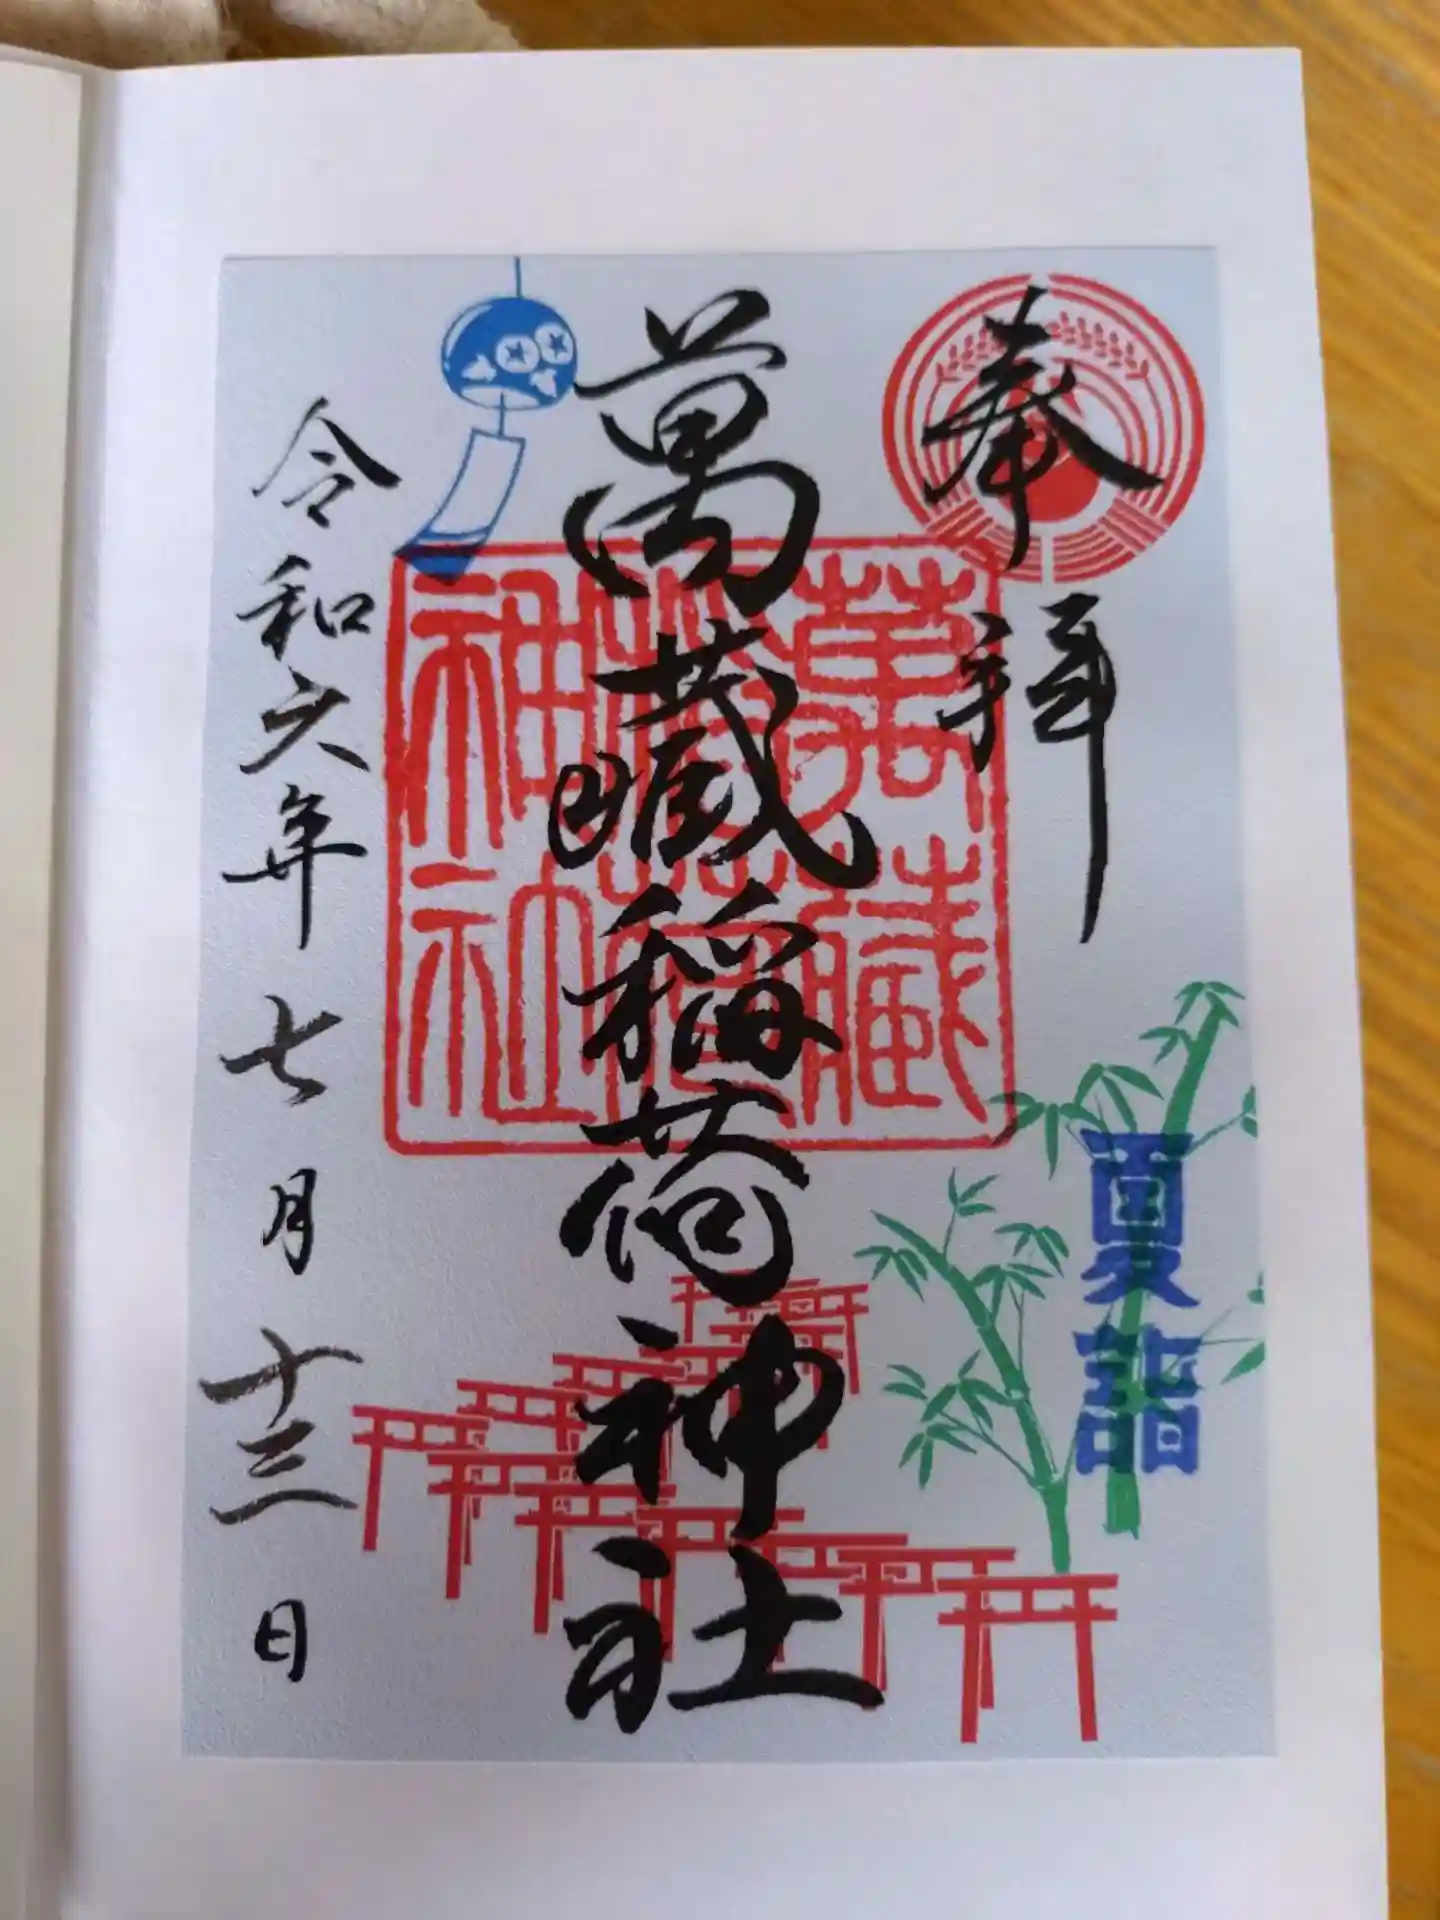 奉拝
夏詣
萬蔵稲荷神社
萬蔵
稲荷
神社
令和六年七月十三日